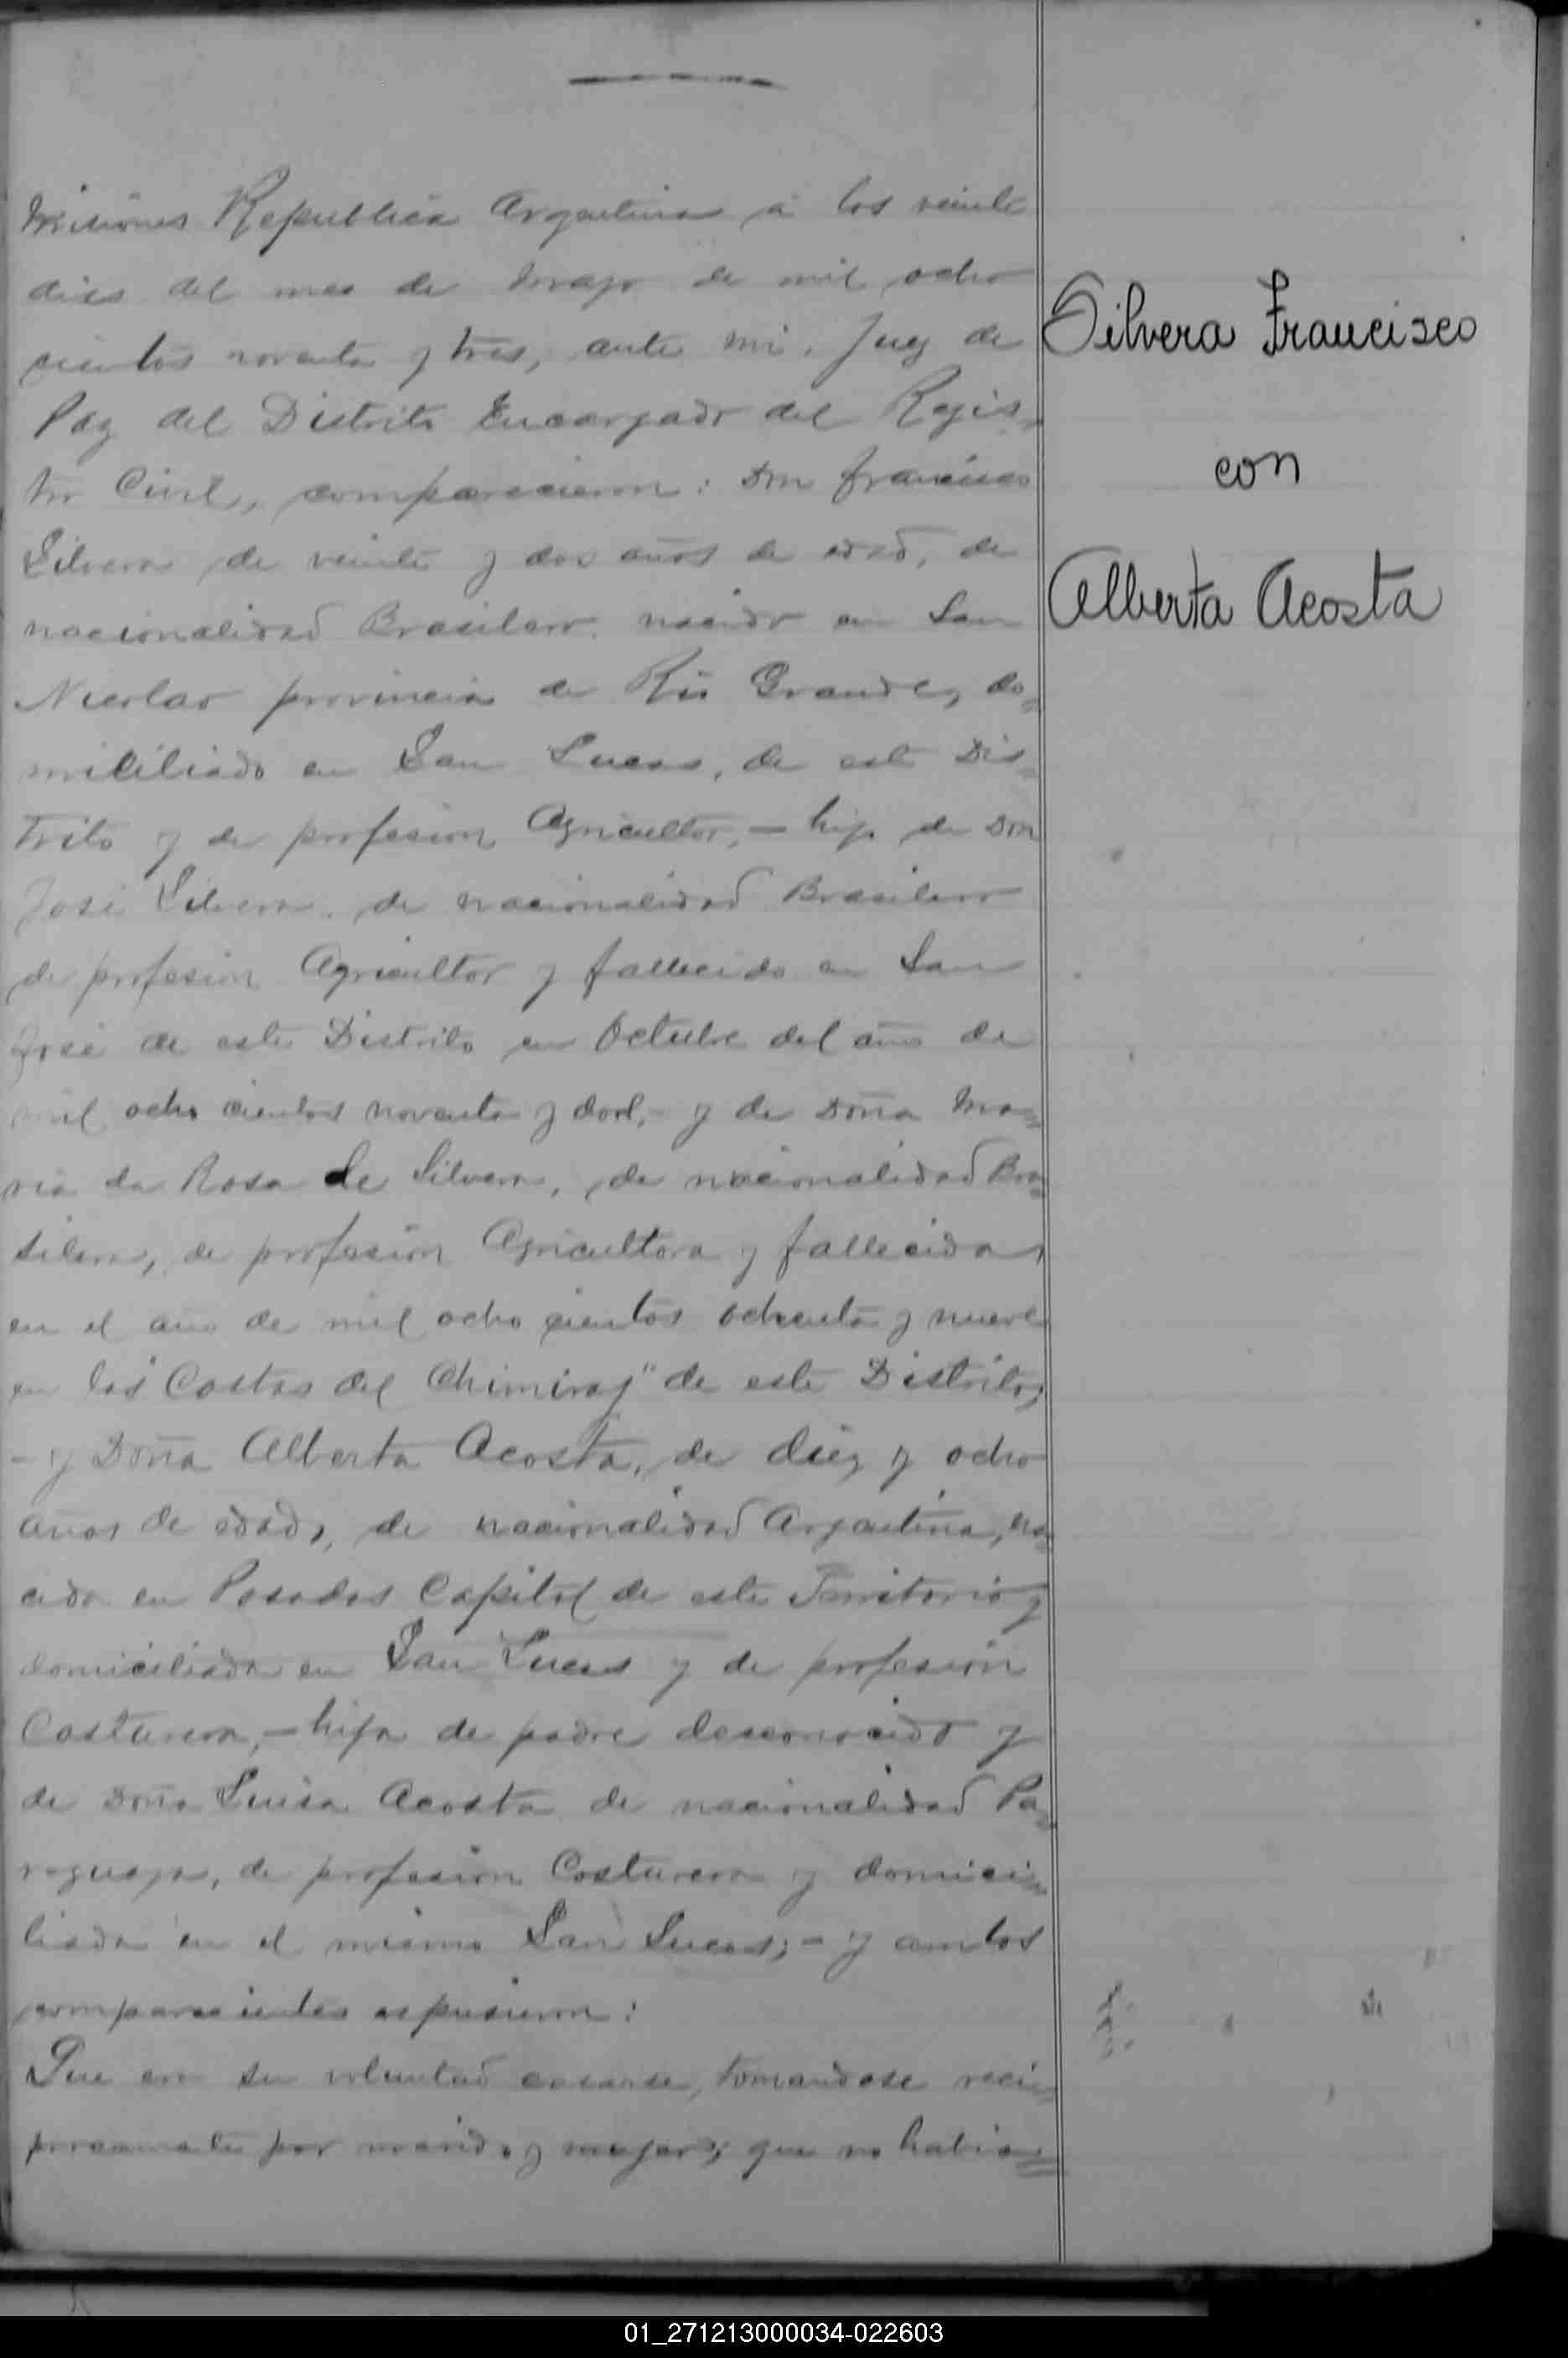 Misiones Republica Argentina á los veinte
dias del mes de Mayo de mil ocho
cientos noventa y tres, ante mi, Juez de
Paz del Distrito Encargado del Regis-
tro Civil, comparecieron: Don Francisco
Silvera de veinte y dos años de edad, de
nacionalidad Brasilero, nacido en San
Nicolas provincia de Rio Grande, do=
miciliado en San Lucas, de este Dis=
trito y de profesion Agricultor, - hijo de Don
José Silvera, de nacionalidad Brasilero
de profesion Agricultor y fallecido en San
José de este Distrito en Octubre del año de
mil ocho cientos noventa y dos, - y de Doña Ma=
ria da Rosa de Silvera, de nacionalidad Bra=
silera, de profesion Agricultora y fallecida
en el año de mil ocho cientos ochenta y nueve
en las "Costas del Chimiray" de este Distrito;
- y Doña Alberta Acosta, de diez y ocho
años de edad, de nacionalidad Argentina, na=
cida en Posadas Capital de este Territorio y
domiciliada en San Lucas y de profesion
Costurera, - hija de padre desconocido y
de Doña Luisa Acosta de nacionalidad Pa=
raguaya, de profesion Costurera y domici=
liada en el mismo San Lucas; - y ambos
comparecientes espusieron:
Que era su voluntad casarse, tomandose reci=
procamente por marido y mujer; que no habia=
Silvera Francisco
con
Alberta Acosta
01_271213000034-022603